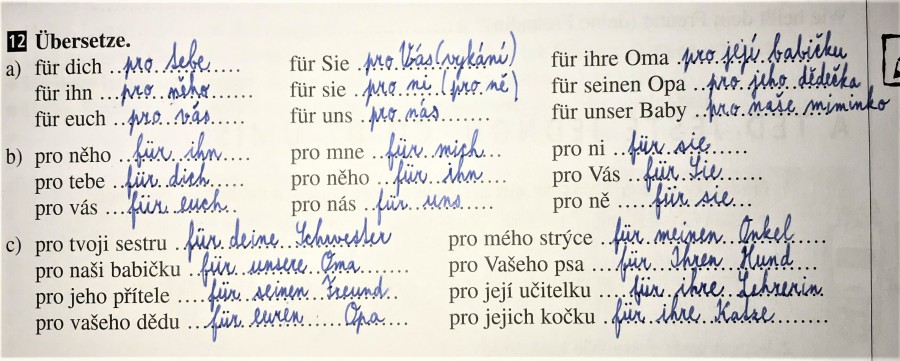 12 Übersetze.
a) für dich ..pro sebe..... für Sie .pro Vás (vykání) für ihre Oma .pro její babičku
für ihn ...pro něho..... für sie ..pro ni (pro ně) für seinen Opa ..pro jeho dědečka
für euch ..pro vás..... für uns .pro nás....... für unser Baby ..pro naše miminko
b) pro něho ..für ihn.... pro mne ..für mich... pro ni ..für sie......
pro tebe ..für dich..... pro něho ...für ihn.... pro Vás ..für Sie......
pro vás ....für euch.. pro nás ..für uns..... pro ně .....für sie...
c) pro tvoji sestru .für deine Schwester pro mého strýce ..für meinen Onkel.....
pro naši babičku ..für unsere Oma....... pro Vašeho psa ...für Ihren Hund.....
pro jeho přítele ....für seinen Freund.. pro její učitelku ....für ihre Lehrerin.
pro vašeho dědu ...für euren ..... Opa.... pro jejich kočku .für ihre Katze.......